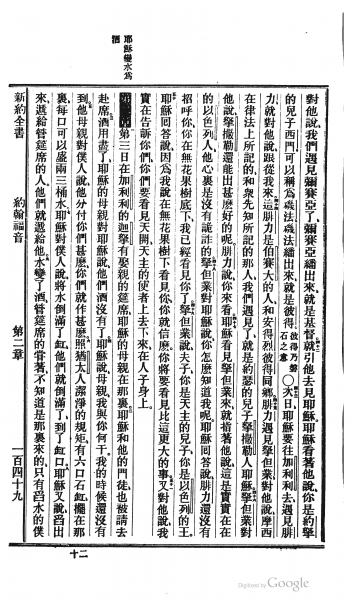 耶穌變水爲酒
對他說、我們遇見彌賽亞了、彌賽亞繙出來、就是基督、就引他去見耶穌、耶穌看著他說、你是約拏
的兒子西門、可以稱爲磯法、磯法繙出來、就是彼得、彼得乃磐石之意 ○次日耶穌要往加利利去、遇見腓
力、就對他說、跟從我來、這腓力是伯賽大的人、和安得烈彼得同鄉、腓力遇見拏但業、對他說、摩西
在律法上所記的、和衆先知所記的那人、我們遇見了、就是約瑟的兒子拏撒勒人耶穌、拏但業對
他說、拏撒勒還能出甚麽好的呢、腓力說、你來看、耶穌看見拏但業來、就指著他說、這是實實在在
的以色列人、他心裏是沒有詭詐的、拏但業對耶穌說、你怎麽知道我呢、耶穌回答說、腓力還沒有
招呼你、你在無花果樹底下、我已經看見你了、拏但業說、夫子、你是天主的兒子、你是以色列的王、
耶穌回答說、因爲我說在無花果樹下看見你、你就信麽、你將要看見比這更大的事、又對他說、我
實在告訴你們、你們要看見天開、天主的使者上去下來在人子身上、
第二章 第三日在加利利的迦拏有娶親的筵席、耶穌的母親在那裏、耶穌和他的門徒也被請去
赴席、酒用盡了、耶穌的母親對耶穌說、他們酒沒有了、耶穌說、母親、我與你何干、我的時候還沒有
到、他母親對僕人說、他分付你們甚麽、你們就作甚麽、照猶太人潔淨的規矩、有六口石缸擺在那
裏、每口可以盛兩三桶水、耶穌對僕人說、將水倒滿了缸、他們就倒滿了、到了缸口、耶穌又說、舀出
來、送給管筵席的人、他們就送給他、水變了酒、管筵席的嘗著、不知道是那裏來的、只有舀水的僕
新約全書 約翰福音 第二章 一百四十九
十二
Digitized by Google